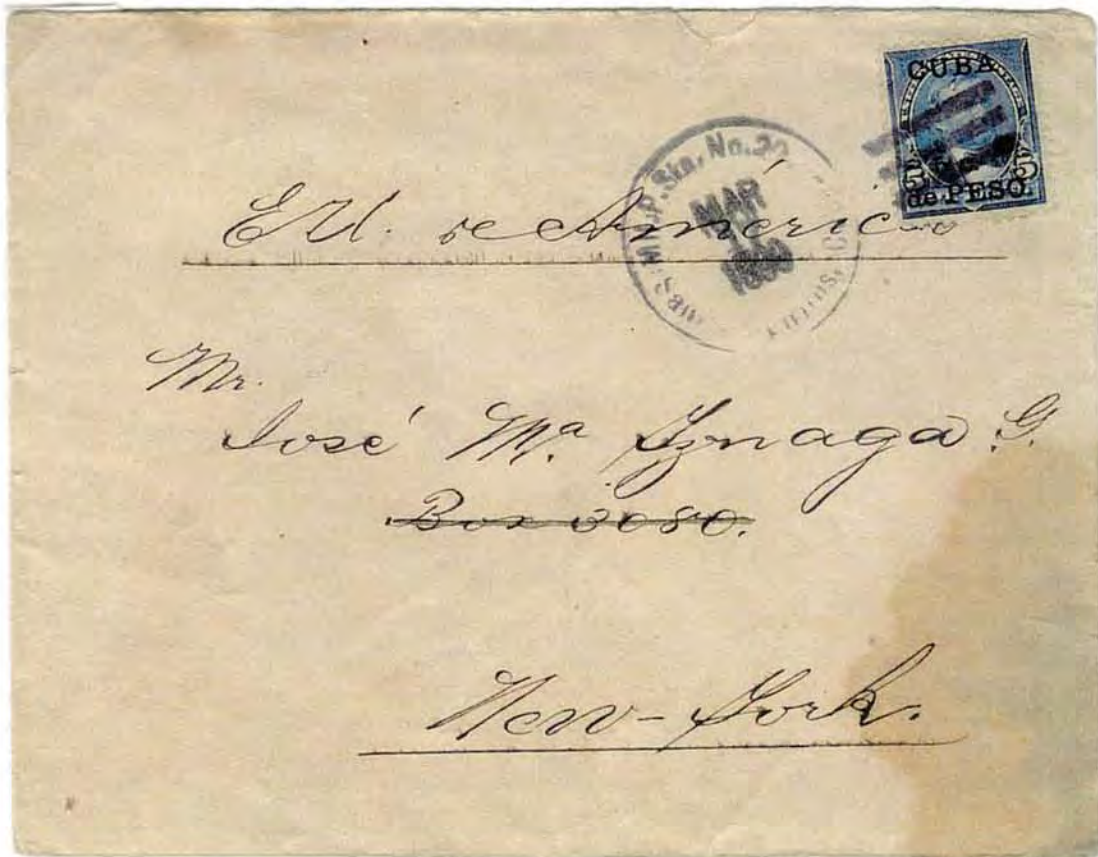 CUBA
5 5
de PESO
P. Sta. No. 20
MAR
1899
E.U. de América
Mr.
José Mª Iznaga G.
Box 3080.
New-York.